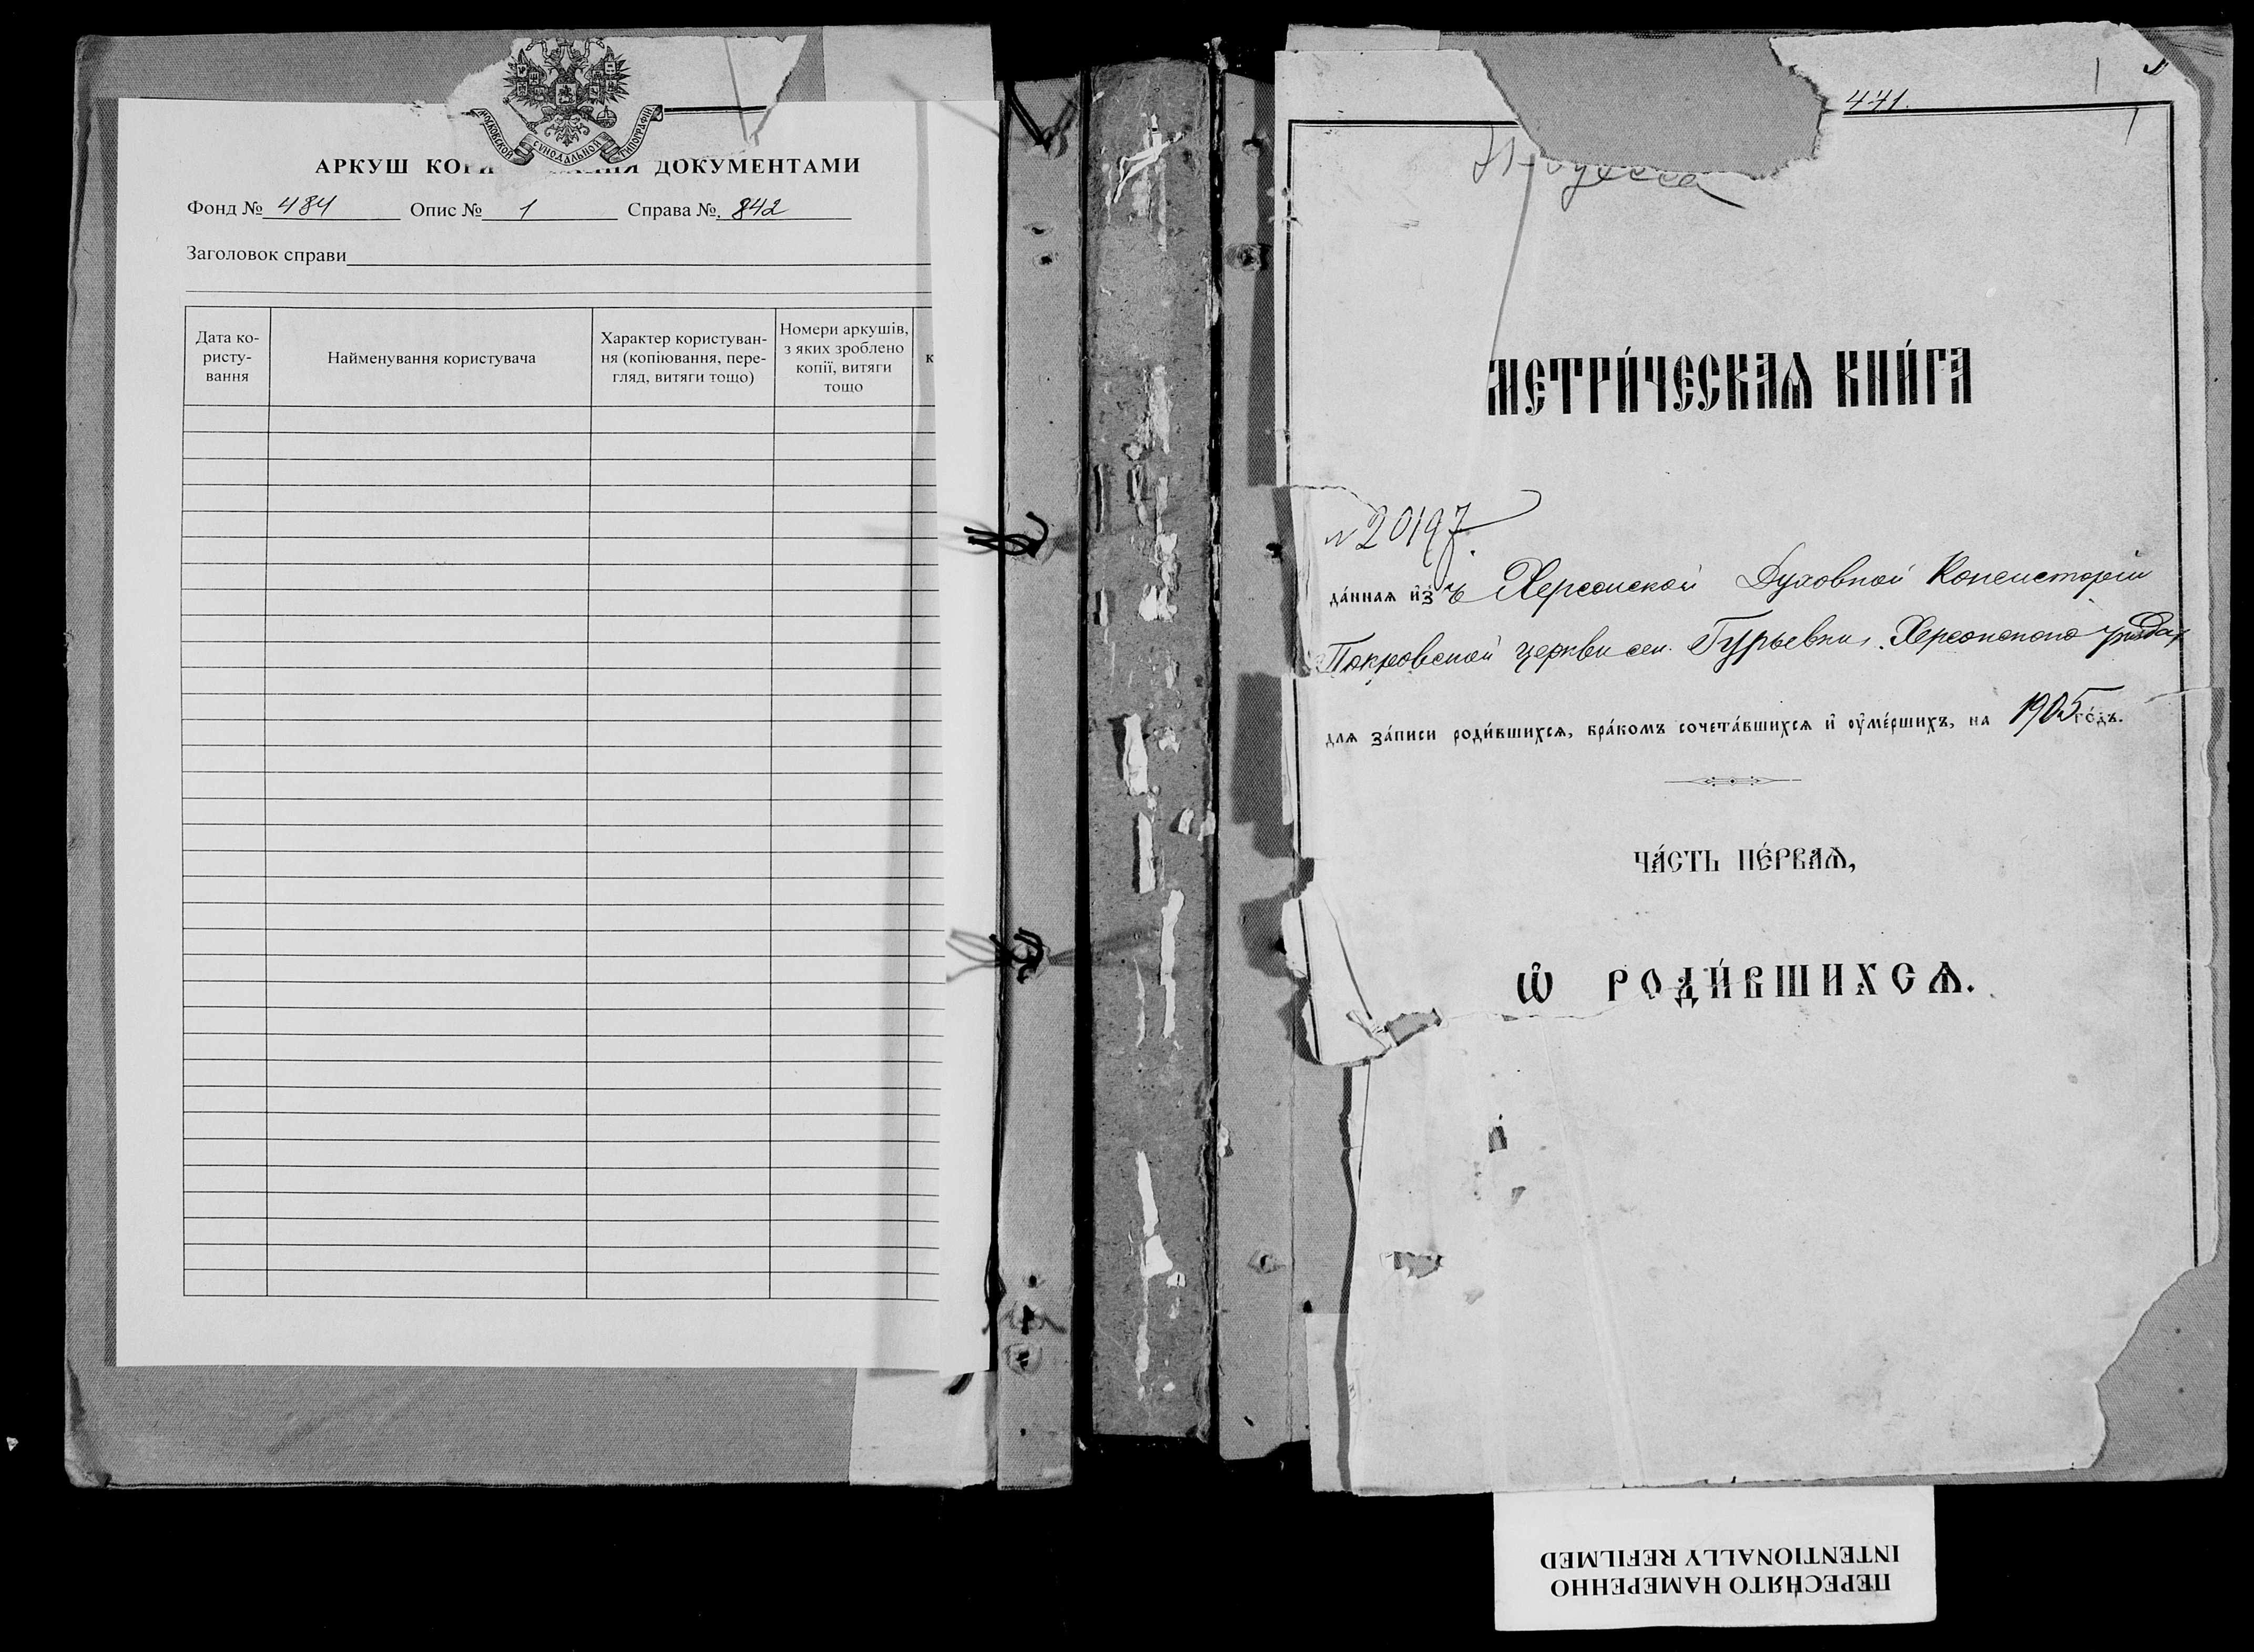 МОСКОВСКОЙ СѴНОДАЛЬНОЙ ТИПОГРАФІИ
АРКУШ КОРИ НЯ ДОКУМЕНТАМИ
Фонд № 484 Опис № 1 Справа № 842
Заголовок справи
Дата ко-
ристу-
вання
Найменування користувача
Характер користуван-
ня (копіювання, пере-
гляд, витяги тощо)
Номери аркушів,
з яких зроблено
копії, витяги
тощо
к
471.
МЕТРИ́ЧЕСКАѦ КНИ́ГА
№ 20197.
да́ннаѧ и҆зъ Херсонской Духовной Консисторіи
Покровской церкви сел. Гурьевки, Херсонскаго уѣзда,
длѧ за́писи роди́вшихсѧ, бра́комъ сочета́вшихсѧ и҆ ᲂу҆ме́ршихъ, на 1905 го́дъ.
ЧА́СТЬ ПЕ́РВАѦ,
Ѽ РОДИ́ВШИХСѦ.
ПЕРЕСНЯТО НАМЕРЕННО
INTENTIONALLY REFILMED